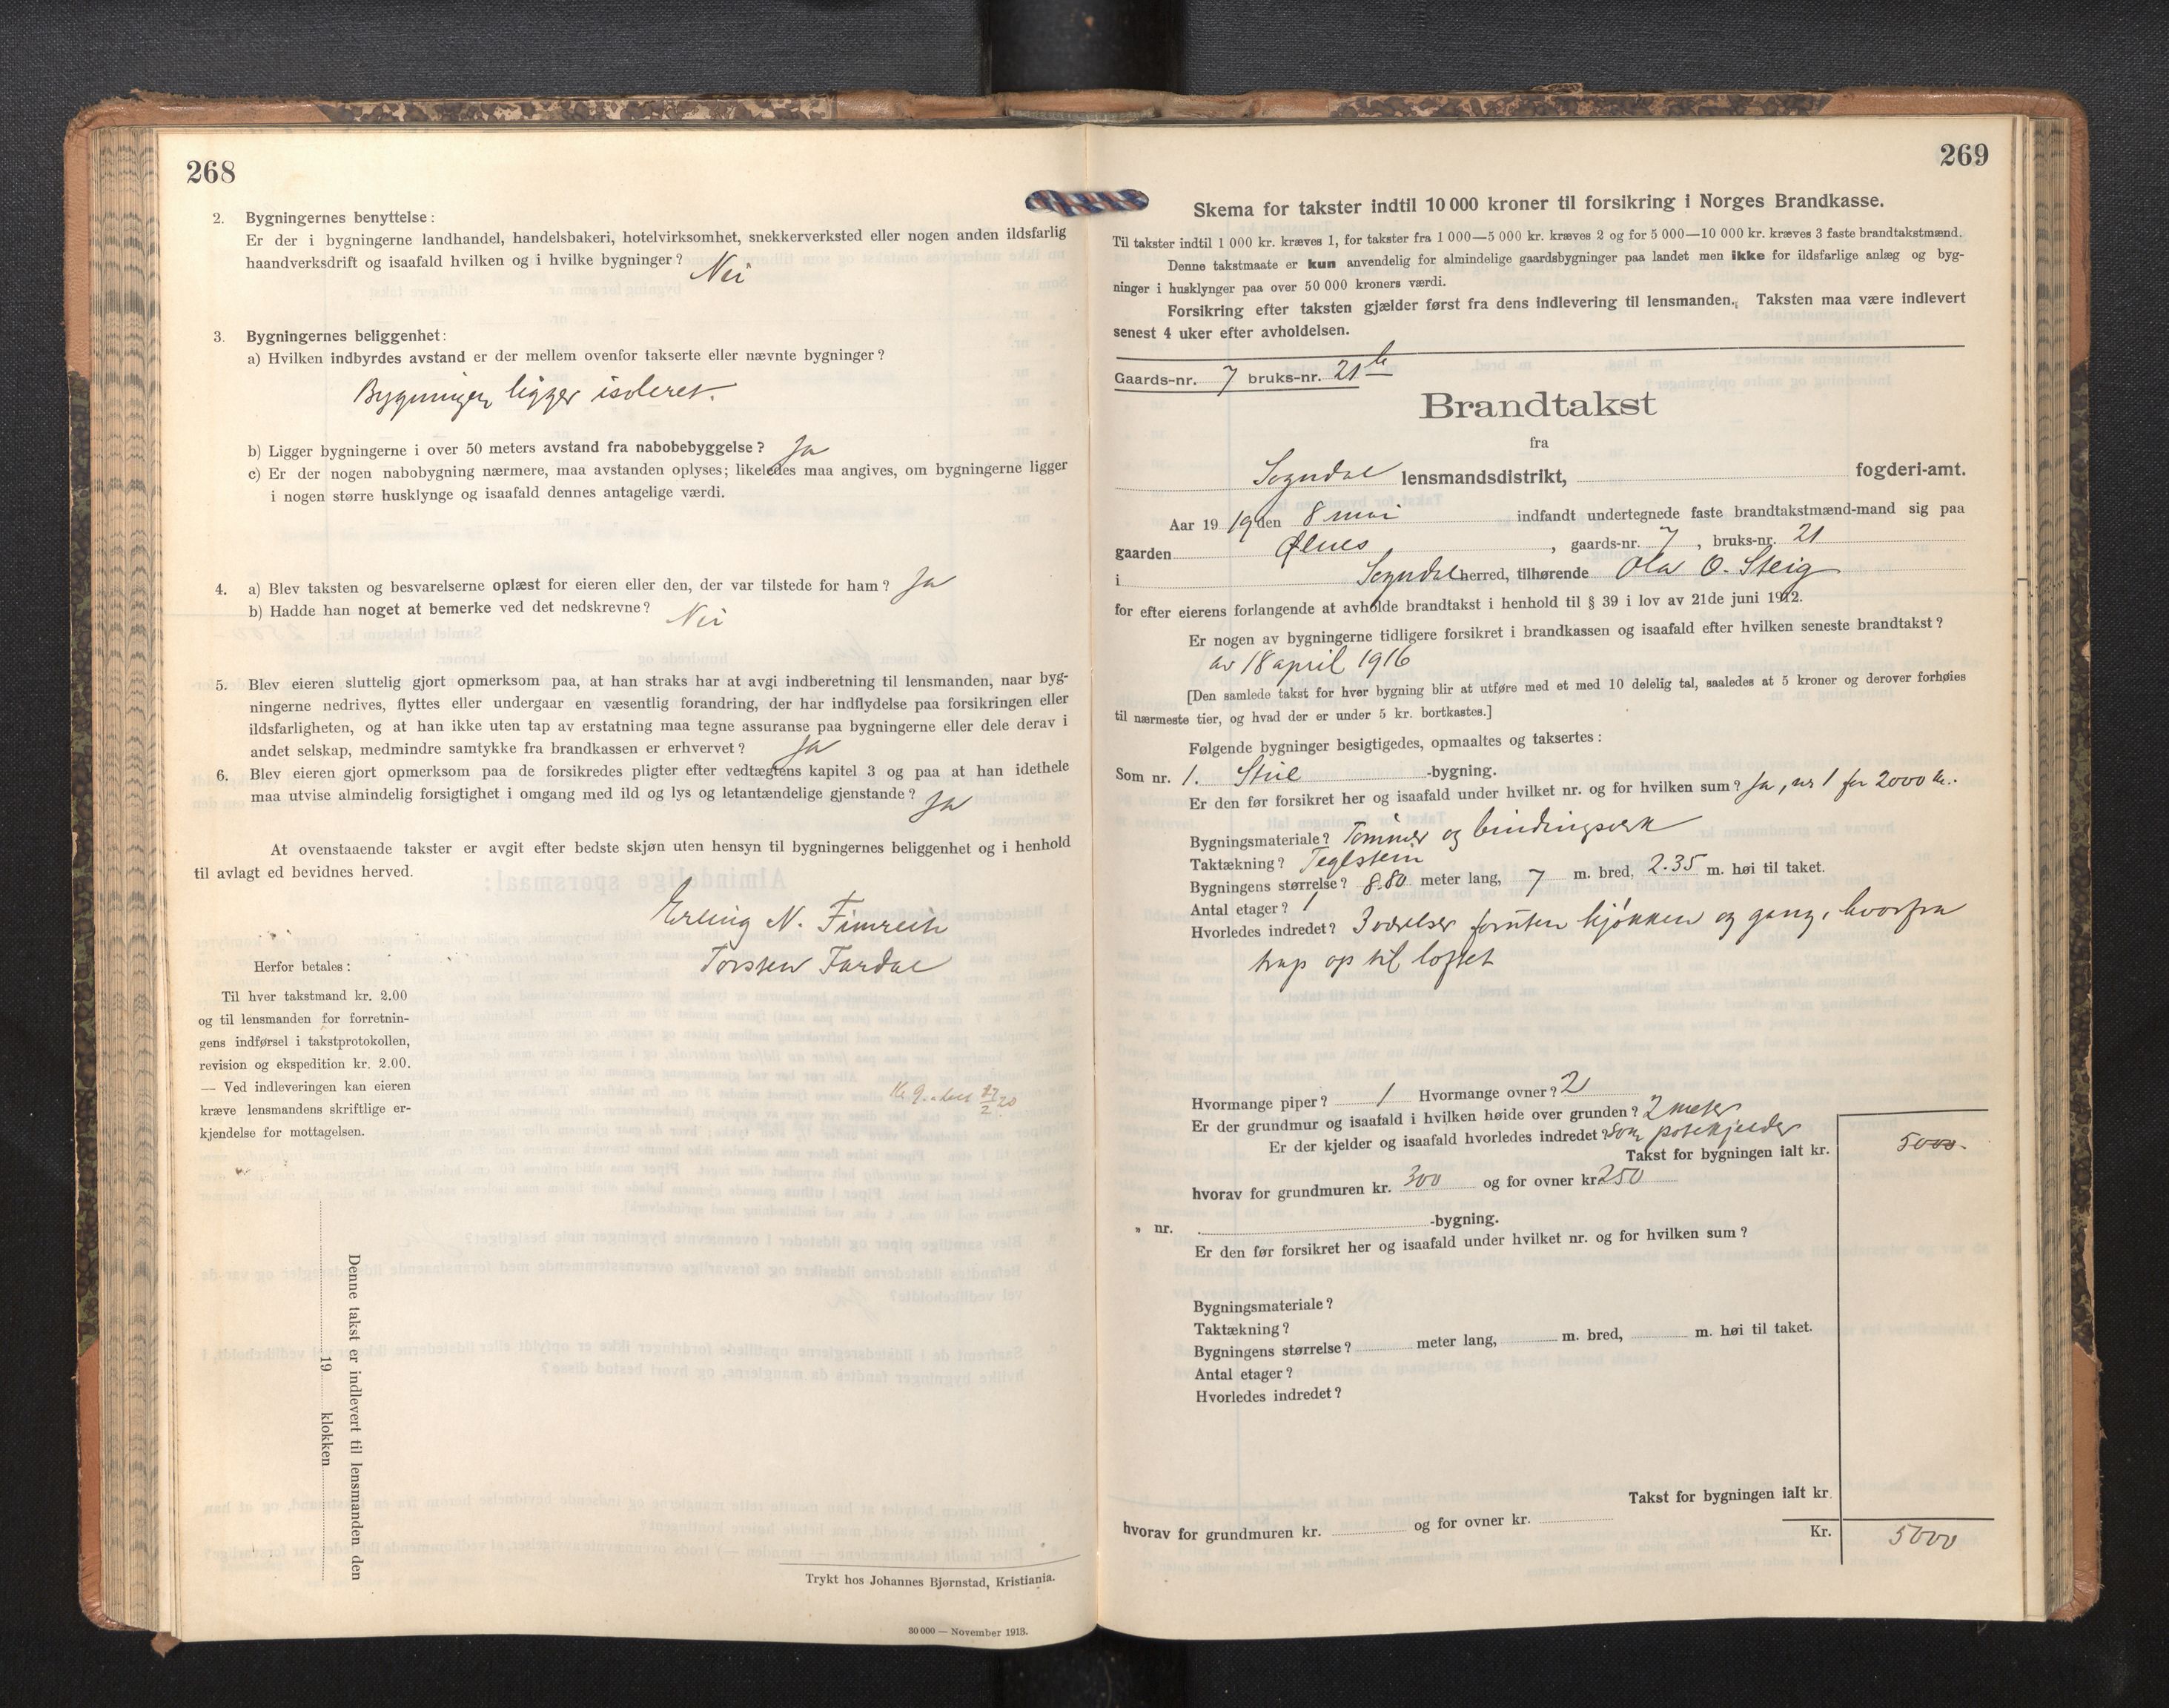 268
2. Bygningernes benyttelse:
Er der i bygningerne landhandel, handelsbakeri, hotelvirksomhet, snekkerverksted eller nogen anden ildsfarlig
haandverksdrift og isaafald hvilken og i hvilke bygninger? Nei
3. Bygningernes beliggenhet:
a) Hvilken indbyrdes avstand er der mellem ovenfor takserte eller nævnte bygninger?
Bygningen ligger isoleret.
b) Ligger bygningerne i over 50 meters avstand fra nabobebyggelse? Ja
c) Er der nogen nabobygning nærmere, maa avstanden oplyses; likeledes maa angives, om bygningerne ligger
i nogen større husklynge og isaafald dennes antagelige værdi.
4. a) Blev taksten og besvarelserne oplæst for eieren eller den, der var tilstede for ham? Ja
b) Hadde han noget at bemerke ved det nedskrevne? Nei
5. Blev eieren sluttelig gjort opmerksom paa, at han straks har at avgi indberetning til lensmanden, naar byg-
ningerne nedrives, flyttes eller undergaar en væsentlig forandring, der har indflydelse paa forsikringen eller
ildsfarligheten, og at han ikke uten tap av erstatning maa tegne assuranse paa bygningerne eller dele derav i
andet selskap, medmindre samtykke fra brandkassen er erhvervet? Ja
6. Blev eieren gjort opmerksom paa de forsikredes pligter efter vedtægtens kapitel 3 og paa at han idethele
maa utvise almindelig forsigtighet i omgang med ild og lys og letantændelige gjenstande? Ja
At ovenstaaende takster er avgit efter bedste skjøn uten hensyn til bygningernes beliggenhet og i henhold
til avlagt ed bevidnes herved.
Erling N. Fimreite
Torsten Fardal
Herfor betales:
Til hver takstmand kr. 2.00
og til lensmanden for forretnin-
gens indførsel i takstprotokollen,
revision og ekspedition kr. 2.00.
— Ved indleveringen kan eieren
kræve lensmandens skriftlige er-
kjendelse for mottagelsen.
Denne takst er indlevert til lensmanden den
19 klokken
Trykt hos Johannes Bjørnstad, Kristiania.
30 000 — November 1913.
269
Skema for takster indtil 10 000 kroner til forsikring i Norges Brandkasse.
Til takster indtil 1 000 kr. kræves 1, for takster fra 1 000—5 000 kr. kræves 2 og for 5 000—10 000 kr. kræves 3 faste brandtakstmænd.
Denne takstmaate er kun anvendelig for almindelige gaardsbygninger paa landet men ikke for ildsfarlige anlæg og byg-
ninger i husklynger paa over 50 000 kroners værdi.
Forsikring efter taksten gjælder først fra dens indlevering til lensmanden. Taksten maa være indlevert
senest 4 uker efter avholdelsen.
Gaards-nr. 7 bruks-nr. 21
Brandtakst
fra
Sogndal lensmandsdistrikt, fogderi-amt.
Aar 1919 den 8 mai indfandt undertegnede faste brandtakstmænd-mand sig paa
gaarden Ølnes, gaards-nr. 7, bruks-nr. 21
i Sogndal herred, tilhørende Ola O. Steig
for efter eierens forlangende at avholde brandtakst i henhold til § 39 i lov av 21de juni 1912.
Er nogen av bygningerne tidligere forsikret i brandkassen og isaafald efter hvilken seneste brandtakst?
av 18 april 1916
[Den samlede takst for hver bygning blir at utføre med et med 10 delelig tal, saaledes at 5 kroner og derover forhøies
til nærmeste tier, og hvad der er under 5 kr. bortkastes.]
Følgende bygninger besigtigedes, opmaaltes og taksertes:
Som nr. 1. Stue -bygning.
Er den før forsikret her og isaafald under hvilket nr. og for hvilken sum? Ja, nr 1 for 2000 kr.
Bygningsmateriale? Tømmer og bindingsverk
Taktækning? Teglstein
Bygningens størrelse? 8.80 meter lang, 7 m. bred, 2.35 m. høi til taket.
Antal etager? 1
Hvorledes indredet? 3 værelser foruten kjøkken og gang, hvorfra
trap op til loftet
Hvormange piper? 1 Hvormange ovner? 2
Er der grundmur og isaafald i hvilken høide over grunden? 2 meter
Er der kjelder og isaafald hvorledes indredet? Som potetkjelder
Takst for bygningen ialt kr. 5000.
hvorav for grundmuren kr. 300 og for ovner kr. 250
„ nr. -bygning.
Er den før forsikret her og isaafald under hvilket nr. og for hvilken sum?
Bygningsmateriale?
Taktækning?
Bygningens størrelse? meter lang, m. bred, m. høi til taket.
Antal etager?
Hvorledes indredet?
Takst for bygningen ialt kr.
hvorav for grundmuren kr. og for ovner kr.
Kr. 5000